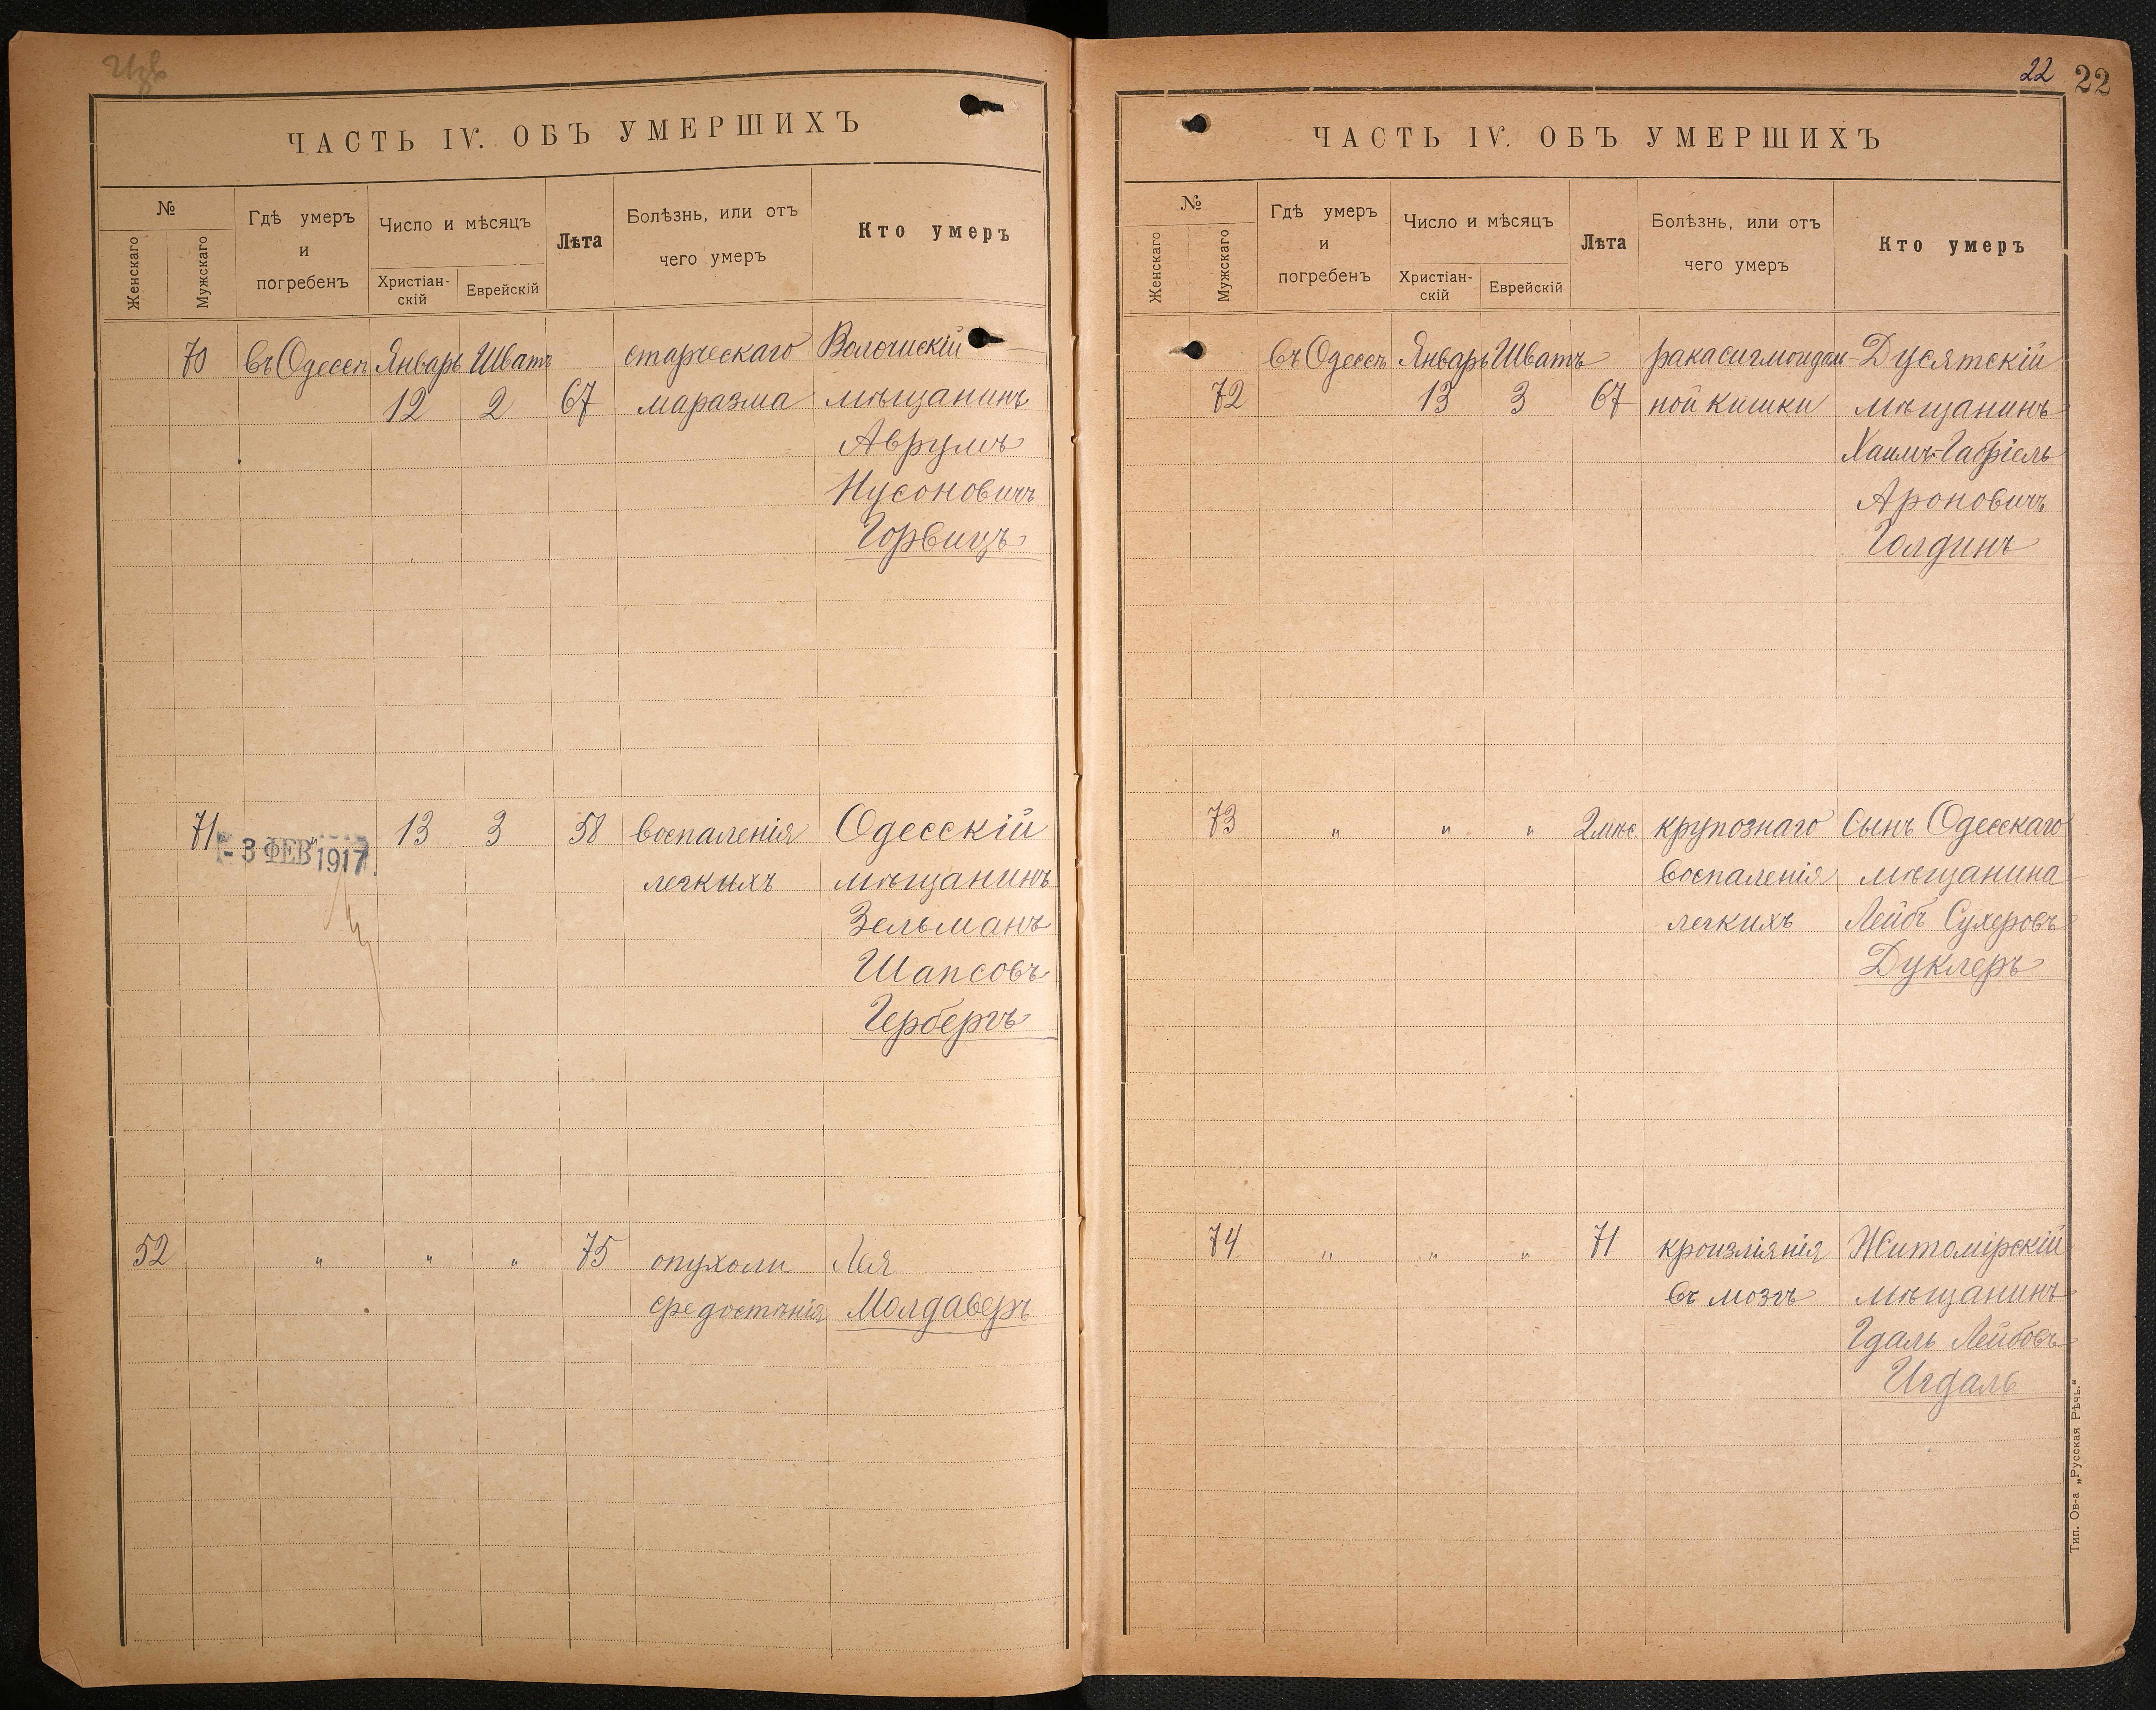 ЧАСТЬ IV. ОБЪ УМЕРШИХЪ
№
Женскаго
Мужскаго
Гдѣ умеръ
и
погребенъ
Число и мѣсяцъ
Христіан-
скій
Еврейскій
Лѣта
Болѣзнь, или отъ
чего умеръ
Кто умеръ
70 въ Одессѣ Январь Шватъ старческаго Волочискій
12 2 67 маразма мѣщанинъ
Аврумъ
Нусоновичъ
Горвицъ
71 13 3 58 воспаленія Одесскій
- 3 ФЕВ 1917
легкихъ мѣщанинъ
Зельманъ
Шапсовъ
Гербергъ
52 " " " 75 опухоли Лея
средостѣнія Молдаверъ
22 22
ЧАСТЬ IV. ОБЪ УМЕРШИХЪ
№
Женскаго
Мужскаго
Гдѣ умеръ
и
погребенъ
Число и мѣсяцъ
Христіан-
скій
Еврейскій
Лѣта
Болѣзнь, или отъ
чего умеръ
Кто умеръ
въ Одессѣ Январь Шватъ рака сигмоидаль- Дусятскій
72 13 3 67 ной кишки мѣщанинъ
Хаимъ-Габріель
Ароновичъ
Голдинъ
73 " " " 2 мѣс. крупознаго Сынъ Одесскаго
воспаленія мѣщанина
легкихъ Лейбъ Сухеровъ
Дуклеръ
74 " " " 71 кроизліянія Житомірскій
въ мозгъ мѣщанинъ
Гдаль Лейбовъ
Игдаль
Тип. Ов-а „Русская Рѣчь."